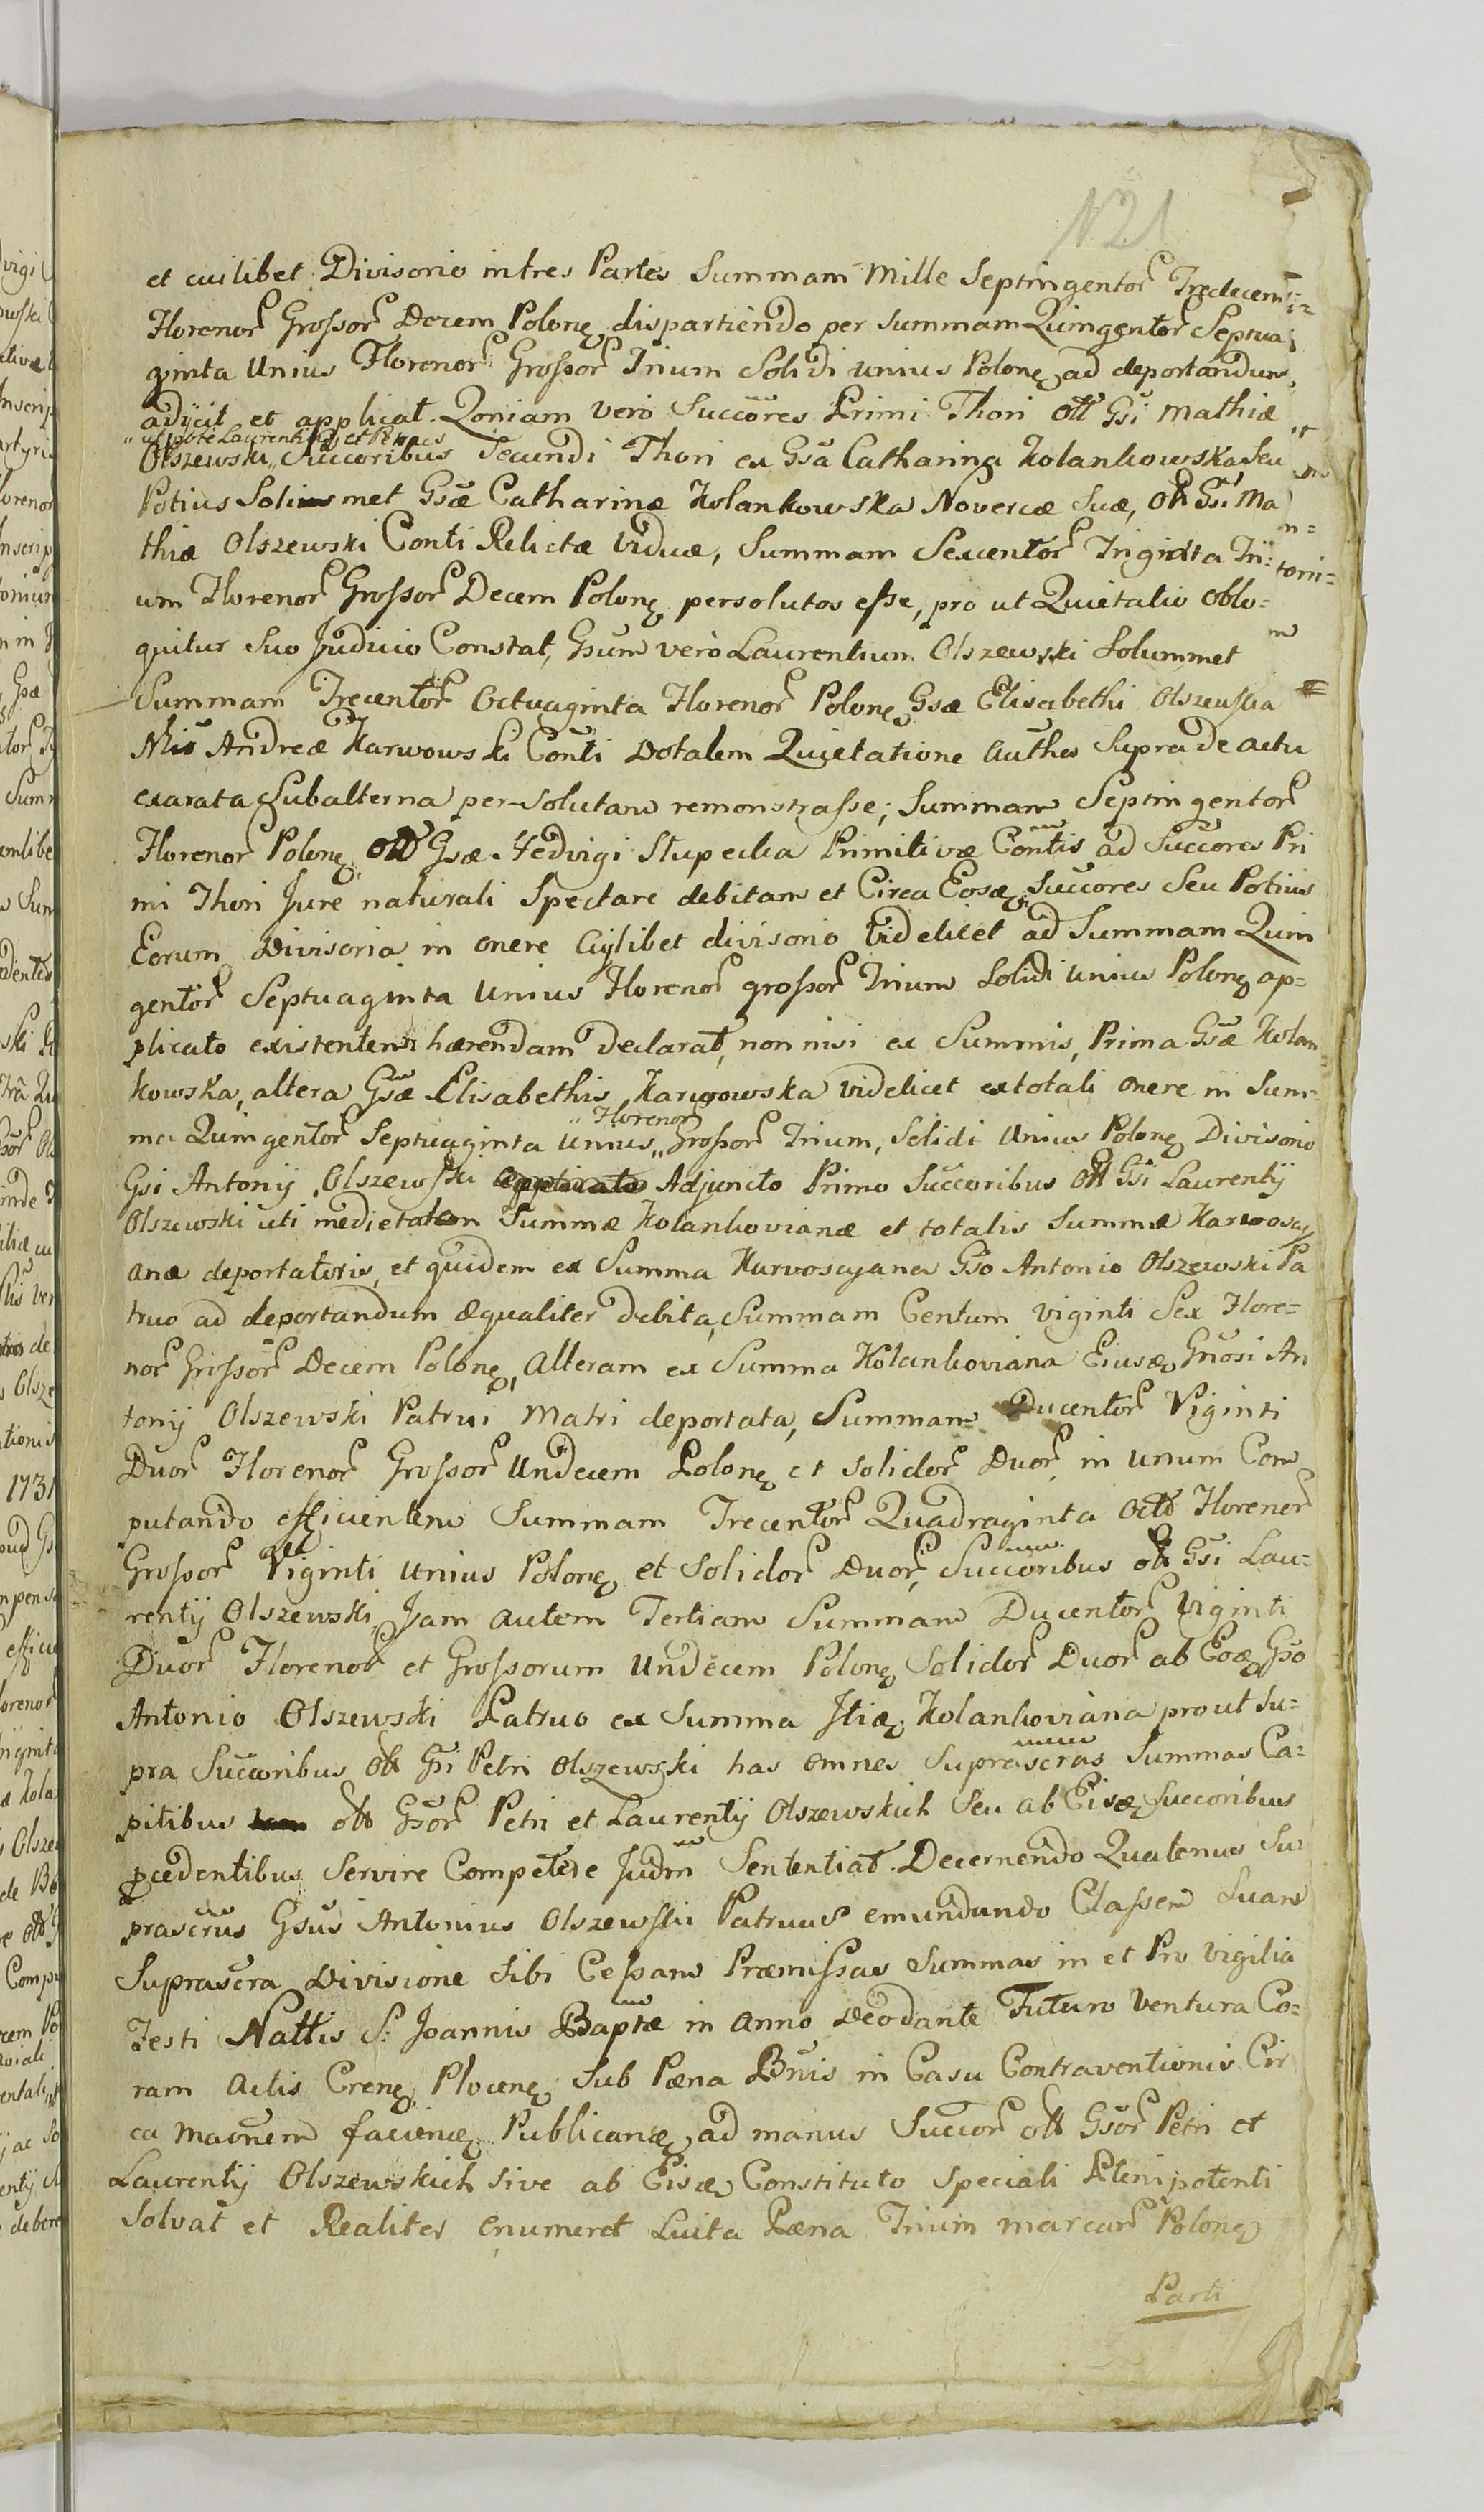 N21
et cuilibet Divisorio in tres Partes Summam Mille Septingentor Tredecem
Florenor Grossor Decem Polonę dispartiendo per Summam Quingentor Septua
ginta Unius Florenor Grossor Trium Solidi unius Polonę ad deportandum
adijcit et applicat. Qoniam vero Succores Primi Thori ott Gsi Mathiæ
„utpote Laurentius et Petrus
Olszewski „ Succoribus Secundi Thori ex Gsa Catharina Kolankowska Seu
Potius Soli met Gsæ Catharinæ Kolankowska Novercæ Suæ, ott Gsi Ma
thiæ Olszewski Conti Relictæ Viduæ, Summam Sexcentor Triginta Tri=
um Florenor Grossor Decem Polonę persolutos esse, pro ut Quietatio oblo=
quitur Suo Judicio Constat, Gsum verò Laurentium Olszewski Solummet
Summam Trecentor Octuaginta Florenor Polonę Gsæ Elisabethi Olszewska
Mis Andreæ Karwowski Conti Dotalem Quietatione Authca Supra de actu
exarata Subalterna per-Solutam remonstrasse; Summam Septingentor
Florenor Polonę ott Gsæ Hedvigi Stupecka Primitivæ Contis ad Succores Pri
mi Thori Jure naturali Spectare debitam et Circa Eosdę Succores Seu Potius
Eorum Divisoria in onere Cuilibet divisorio Videlicet ad Summam Quin
gentor Septuaginta Unius Florenor grossor Trium Solidi Unius Polonę ap=
plicato existentem hærendam declarat, non nisi ex Summis, Prima Gsæ Kolan
kowska, altera Gsæ Elisabethis Karwowska videlicet ex totali onere in Sum=
„Florenor
ma Quingentor Septuaginta Unius „ Grossor Trium, Solidi Unius Polonę Divisorio
Gsi Antonij Olszewski applicato Adjuncto Primo Succoribus ott Gsi Laurentij
Olszewski uti medietatem Summæ Kolankovianæ et totalis Summæ Karwoscy
anæ deportatoris, et quidem ex Summa Karvoscyana Gso Antonio Olszewski Pa
truo ad deportandum æqualiter debita, Summam Centum viginti Sex Flore=
nor Grossor Decem Polonę, Alteram ex Summa Kolankoviana Eiusdę Gnosi An
tonij Olszewski Patrui Matri deportata, Summam Ducentor Viginti
Duor Florenor Grossor Undecem Polonę et Solidor Duor, in unum Com
putando efficientem Summam Trecentor Quadraginta Octo Florenor
Grossor Viginti Unius Polonę et Solidor Duor, Succoribus ott Gsi Lau=
rentij Olszewski, Jam autem Tertiam Summam Ducentor Viginti
Duor Florenor et Grossorum Undecem Polonę Solidor Duor ab Eodę Gso
Antonio Olszewski Patruo ex Summa Itidę Kolankoviana prout Su=
pra Succoribus ott Gsi Petri Olszewski has omnes Suprascras Summas Ca=
pitibus ott Gsor Petri et Laurentij Olszewskich Seu ab Eisdę Succoribus
pcedentibus Servire Competere Judm Sententiat. Decernendo Quatenus Su=
prascrus Gsus Antonius Olszewski Patruus emundando Classem Suam
Suprascra Divisione Sibi Cessam Præmissas Summas in et Pro Vigilia
Festi Nattis S: Joannis Baptæ in Anno Deodante Futuro ventura Co=
ram Actis Crenę Plocenę Sub Pæna Bnis in Casu Contraventionis Cir
ca Maonem faciendę Publicandę ad manus Succor ott Gsor Petri et
Laurentij Olszewskich sive ab Eisdę Constituto Speciali Plenipotenti
Solvat et Realiter enumeret Luita Pæna Trium marcar Polonę
Parti